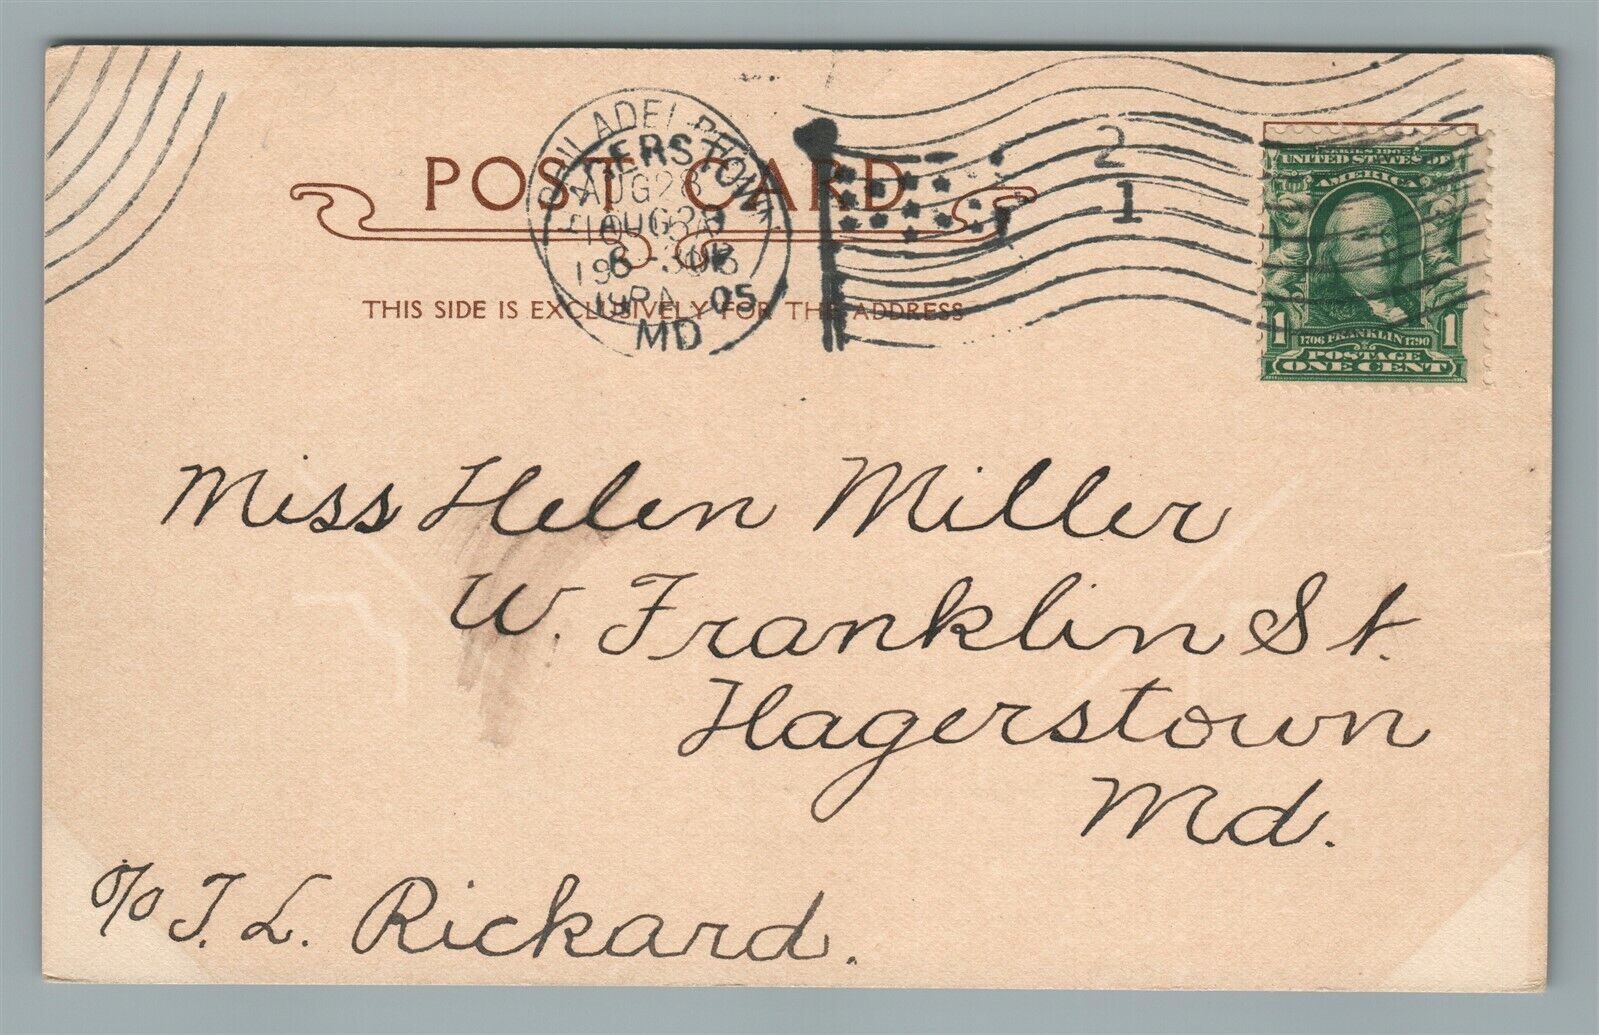 POST CARD
THIS SIDE IS EXCLUSIVELY FOR THE ADDRESS
PHILADELP
AUG 28
PA
MD
05
2
1
SERIES 1902
UNITED STATES OF
AMERICA
1 1706 FRANKLIN 1790 1
POSTAGE
ONE CENT
Miss Helen Miller
W. Franklin St.
Hagerstown
Md.
c/o T. L. Rickard.